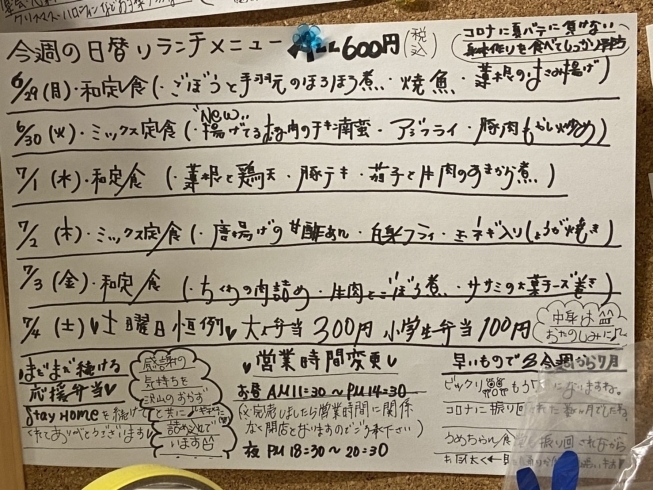 今週の日替りランチメニュー ALL600円(税込)
コロナに夏バテに負けない
6/29(月)・和定食(・ごぼうと手羽元のほろほう煮・焼魚・蓮根のはさみ揚げ)
New
6/30(火)・ミックス定食(・揚げてるむね肉のチキン南蛮・アジフライ・豚肉もやし炒め)
7/1(水)・和定食(・蓮根と鶏天・豚テキ・茄子と牛肉のあまから煮)
7/2(木)・ミックス定食(・唐揚げの甘酢あん・白身フライ・玉ネギ入りしょうが焼き)
7/3(金)・和定食(・ちくわの肉詰め・牛肉とごぼう煮・ササミの大葉チーズ巻き)
7/4(土)♥土曜日恒例♥大人弁当300円 小学生弁当100円
中身は
おたのしみに♪
まだまだ続ける
応援弁当♥
Stay Homeを続けて
くれてありがとうございます
感謝の
気持ちを
沢山のおかず
と共に
詰め込んで
います
♥営業時間変更♥
お昼 AM11:30〜PM14:30
(※完売しましたら営業時間に関係
なく閉店となりますのでご了承下さい)
夜 PM18:30〜20:30
早いもので今週から7月
ビックリ もう7 になりますね。
コロナに振り回された 月でしたね
うめちゃん食 振り回されながら